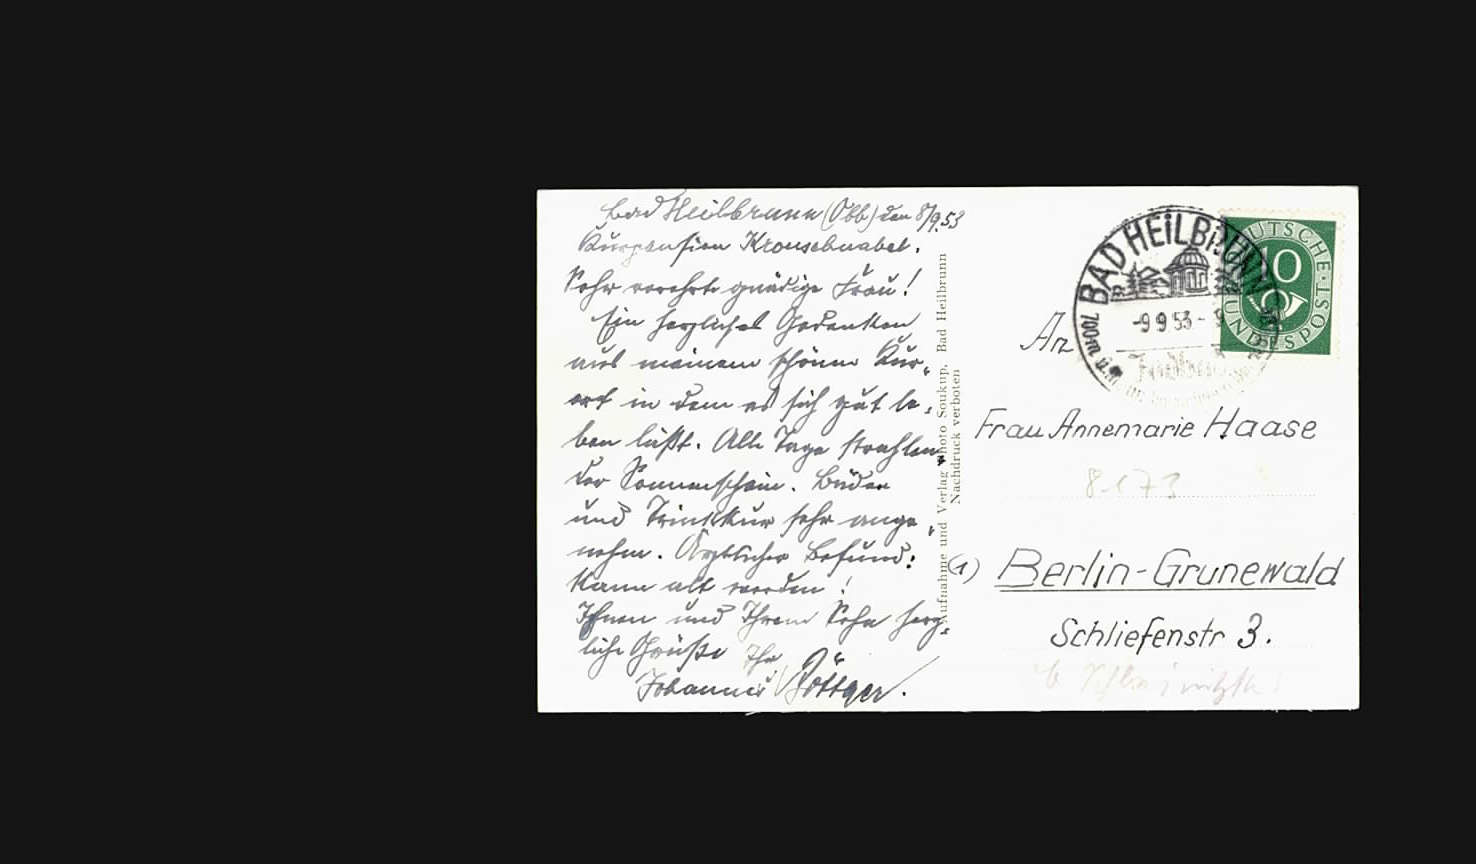 Bad Heilbrunn (Obb) den 8/9.53
Kurpension Kronschnabel.
Sehr verehrte gnädige Frau!
Ein herzliches Gedenken
aus meinem schönen Kur-
ort in dem es sich gut le-
ben läßt. Alle Tage strahlen-
der Sonnenschein. Bäder
und Trinkkur sehr ange-
nehm. Ärztlicher Befund:
Kann alt werden!
Ihnen und Ihrem Sohn herz-
liche Grüße Ihr
Johannes Böttger.
Aufnahme und Verlag Photo Soukup, Bad Heilbrunn
Nachdruck verboten
BAD HEILBRUNN
-9 9 53 - 9
700 m ü.
DEUTSCHE BUNDESPOST
10
An
Frau Annemarie Haase
8-173
(1) Berlin-Grunewald
Schliefenstr 3.